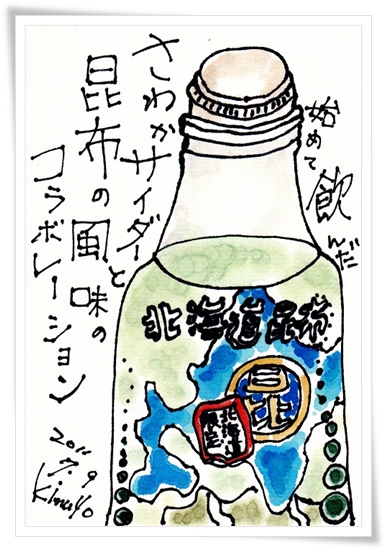 始めて飲んだ
さわかサイダーと
昆布の風味の
コラボレーション
北海道昆布
北海道
限定
2011
7.9
Kimiyo